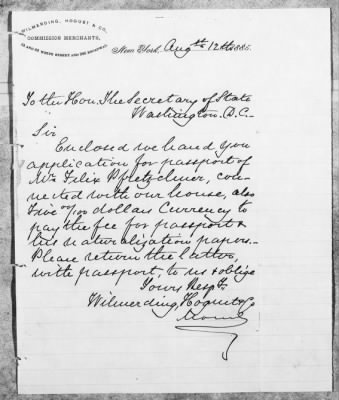 WILMERDING, HOGUET & CO.
COMMISSION MERCHANTS,
New York, Augth 12th 1885.
To the Hon. The Secretary of State
Washington. D.C.
Sir
Enclosed we hand you
application for passport of
Mr Felix Pfretzchner, con-
nected with our house, also
Five 00/100 dollars Currency to
pay the fee for passport &
his naturalization papers.
Please return the latter,
with passport, to us & oblige
Yours Respy
Wilmerding, Hoguet & Co